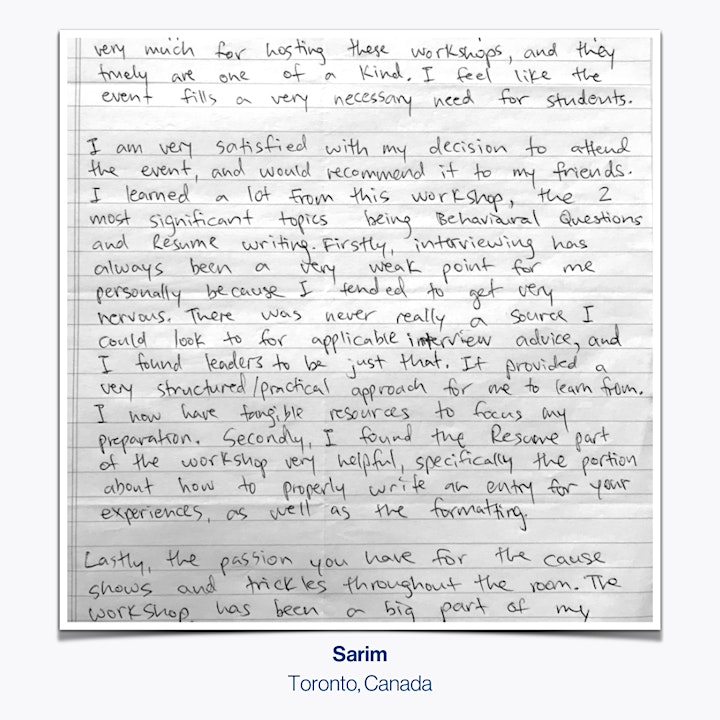 very much for hosting these workshops, and they
truely are one of a kind. I feel like the
event fills a very necessary need for students.
I am very satisfied with my decision to attend
the event, and would recommend it to my friends.
I learned a lot from this workshop, the 2
most significant topics being Behavioural Questions
and Resume writing. Firstly, interviewing has
always been a very weak point for me
personally because I tended to get very
nervous. There was never really a source I
could look to for applicable interview advice, and
I found leaders to be just that. It provided a
very structured/practical approach for me to learn from.
I now have tangible resources to focus my
preparation. Secondly, I found the Resume part
of the workshop very helpful, specifically the portion
about how to properly write an entry for your
experiences, as well as the formatting.
Lastly, the passion you have for the cause
shows and trickles throughout the room. The
workshop has been a big part of my
Sarim
Toronto, Canada